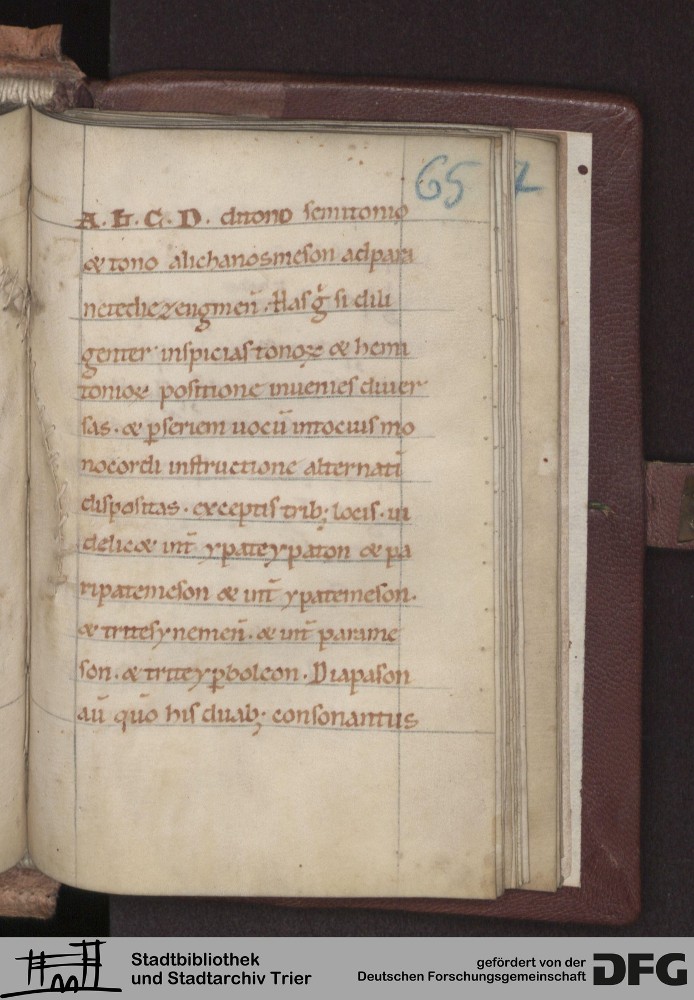 65
A. B. C. D. ditono semitonio
& tono alichanosmeson adpara
netediezeugmen̄. Has g̊ si dili
genter inspicias tonoꝝ & hemi
tonioꝝ positione inuenies diuer
sas. & ꝑseriem uocū intocius mo
nocordi instructione alternatī
dispositas. exceptis trib; locis. ui
delic& int̄ ypateypaton & pa
ripatemeson & int̄ ypatemeson.
& tritesynemen̄. & int̄ parame
son. & triteyꝑboleon. Diapason
aū quō his duab; consonantiis
Stadtbibliothek
und Stadtarchiv Trier
gefördert von der
Deutschen Forschungsgemeinschaft
DFG